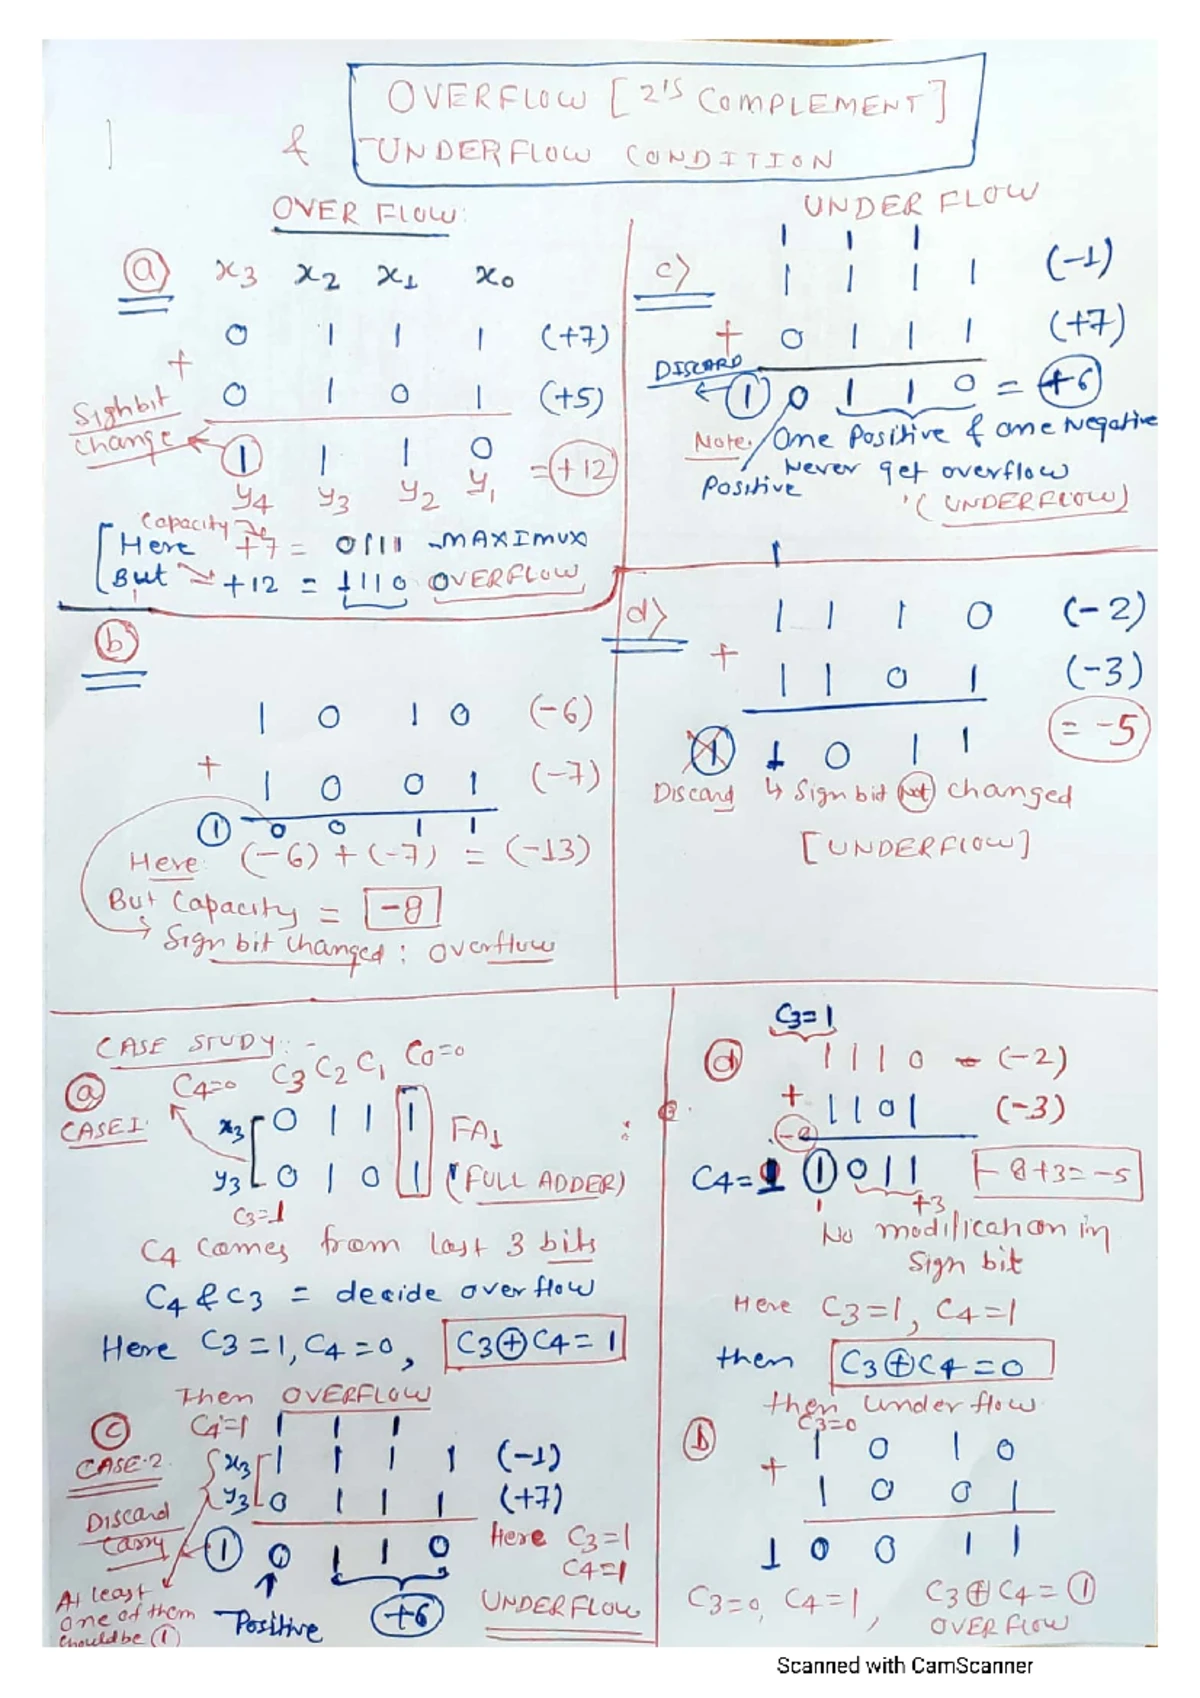 OVERFLOW [2'S COMPLEMENT]
& UNDERFLOW CONDITION
OVER FLOW:
(a) x3 x2 x1 x0
0 1 1 1 (+7)
+
0 1 0 1 (+5)
Sign bit
change
1 1 1 0 = +12
y4 y3 y2 y1
Capacity
[Here +7 = 0111 -MAXIMUM
But +12 = 1110 OVERFLOW
UNDER FLOW
1 1 1
c) 1 1 1 1 (-1)
+ 0 1 1 1 (+7)
DISCARD
1 0 1 1 0 = +6
Note: One Positive & one Negative
Never get overflow
Positive
(UNDERFLOW)
(b)
1 0 1 0 (-6)
+ 1 0 0 1 (-7)
1 0 0 1 1
Here: (-6) + (-7) = (-13)
But Capacity = -8
Sign bit changed: overflow
1
d) 1 1 1 0 (-2)
+ 1 1 0 1 (-3)
1 1 0 1 1 = -5
Discard ↳ Sign bit Not changed
[UNDERFLOW]
CASE STUDY:-
(a) C4=0 C3 C2 C1 C0=0
CASE I.
x3 0 1 1 1 FA1
y3 0 1 0 1 (FULL ADDER)
C3=1
C4 comes from last 3 bits
C4 & C3 = decide overflow
Here C3=1, C4=0, C3⊕C4=1
Then OVERFLOW
(c) C4=1 1 1 1
CASE-2. x3 1 1 1 1 (-1)
y3 0 1 1 1 (+7)
Discard
Carry
1 0 1 1 0
Here C3=1
C4=1
At least
one of them
should be 1
Positive +6 UNDERFLOW
C3=1
(d) 1 1 1 0 - (-2)
+ 1 1 0 1 (-3)
-8
C4=1 1 0 1 1 -8+3=-5
+3
No modification in
Sign bit
Here C3=1, C4=1
then C3⊕C4=0
then underflow
C3=0
(b) 1 0 1 0
+ 1 0 0 1
1 0 0 1 1
C3=0, C4=1, C3⊕C4=1
OVERFLOW
Scanned with CamScanner